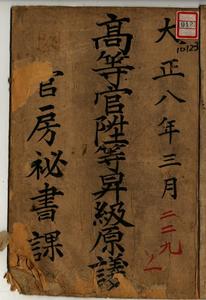 大正八年三月
高等官陞等昇級原議
官房祕書課
二二九